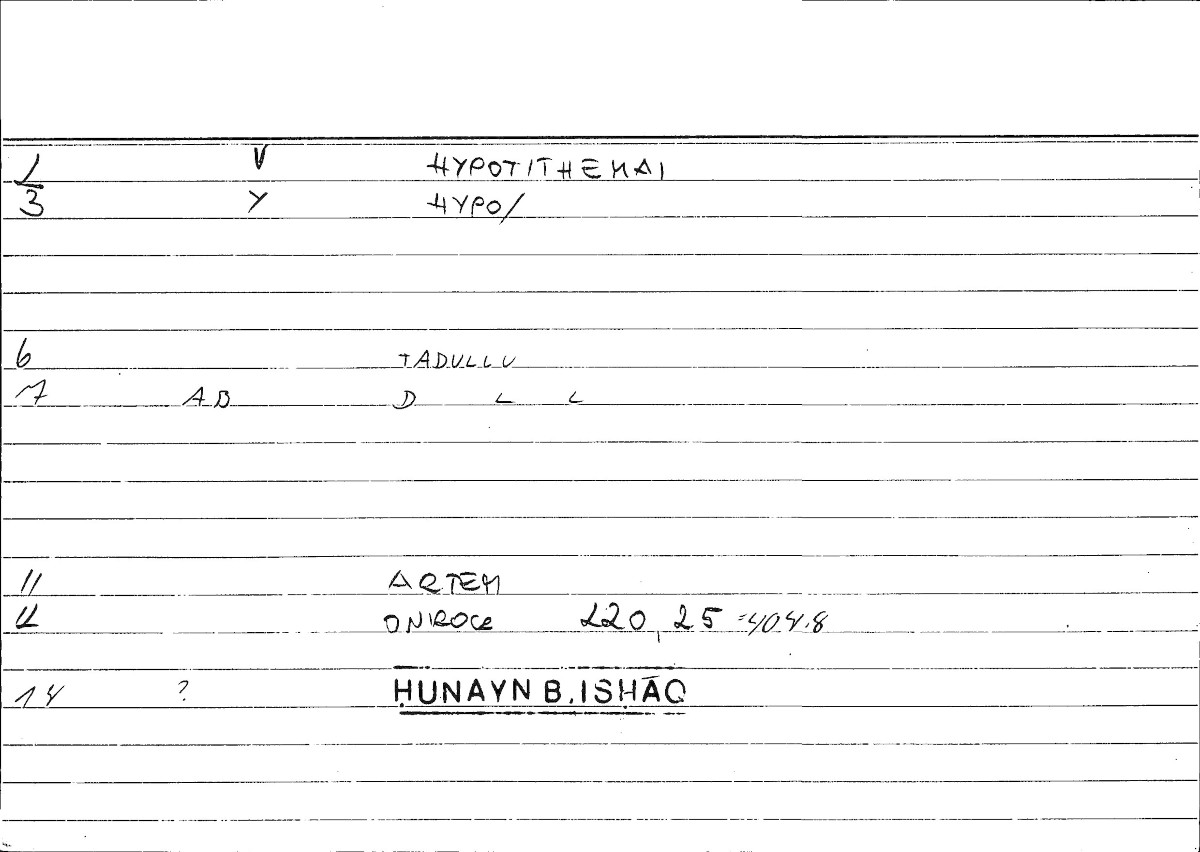 1 V HYPOTITHEMAI
3 Y HYPO/
6 TADULLU
7 AB D L L
11 ARTEM
12 ONIROCR 220,25 =404.8
14 ? ḤUNAYN B. ISḤĀQ